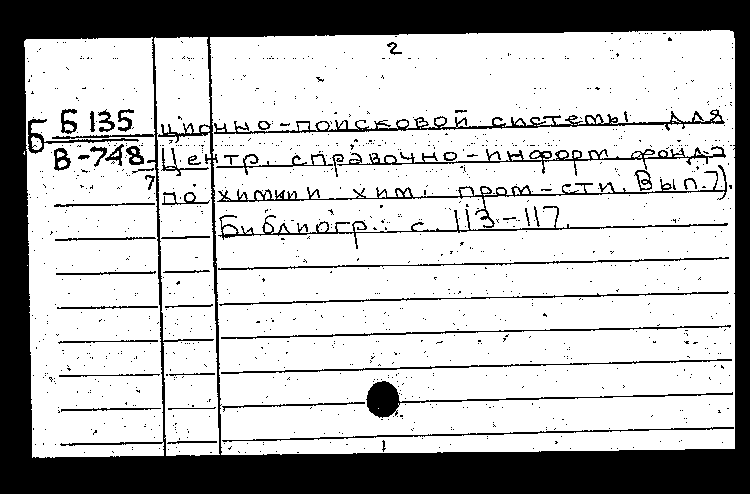 2
Б Б 135 ционно-поисковой системы для
В-748 Центр. справочно-информ. фонда
7 по химии и хим. пром-сти. Вып. 7).
Библиогр.: с. 113-117.